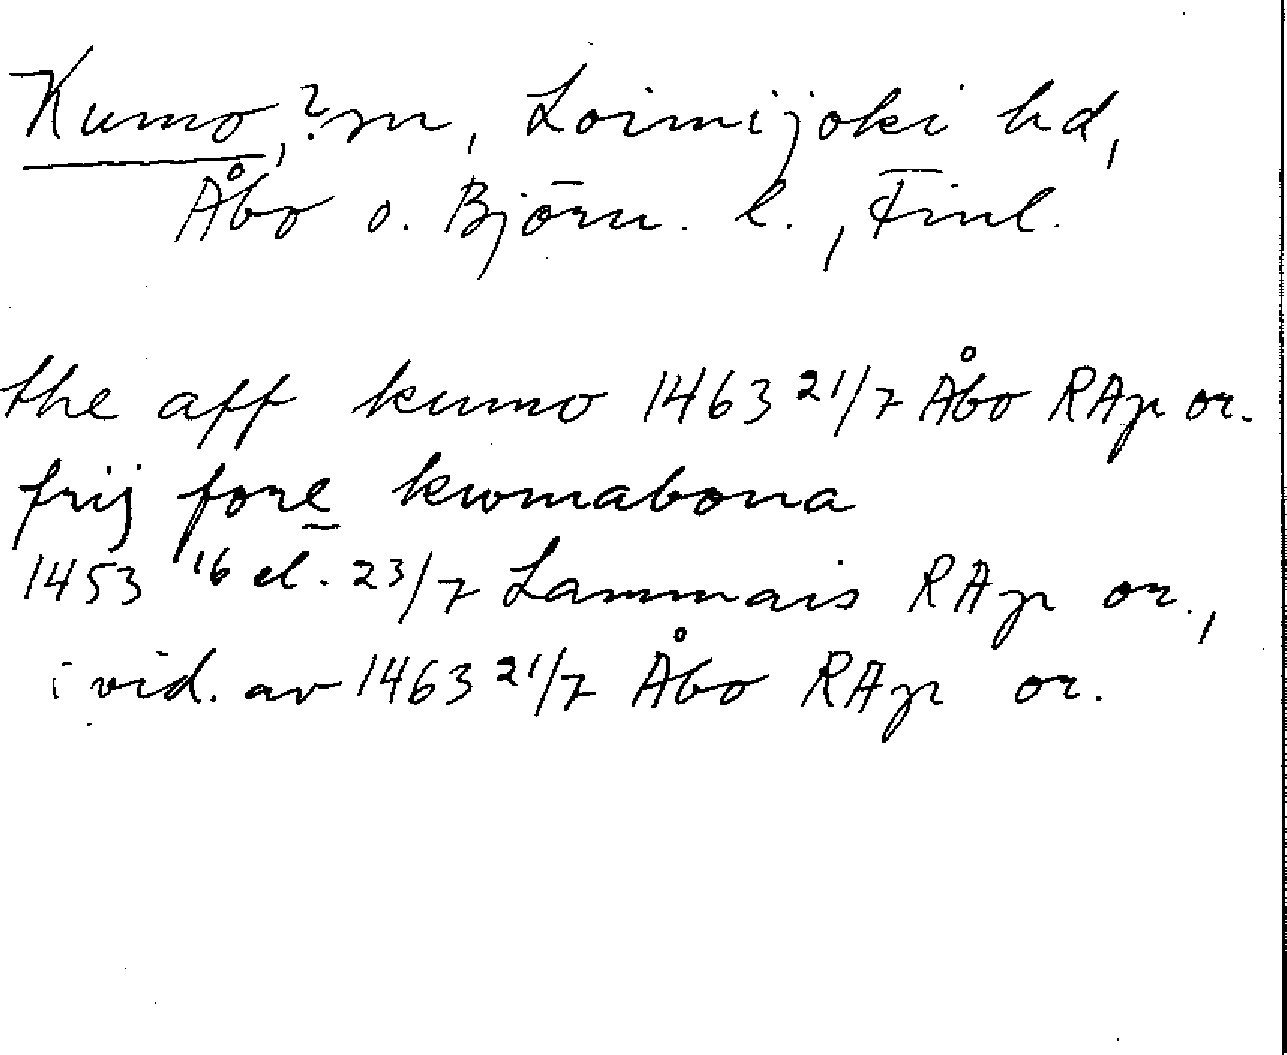 Kumo, ? sn, Loimijoki hd,
Åbo o. Björn. l., Finl.
the aff kumo 1463 21/7 Åbo RAp or.
frij fore kwmabona
1453 16 el. 23/7 Lammais RAp or.,
i vid. av 1463 21/7 Åbo RAp or.